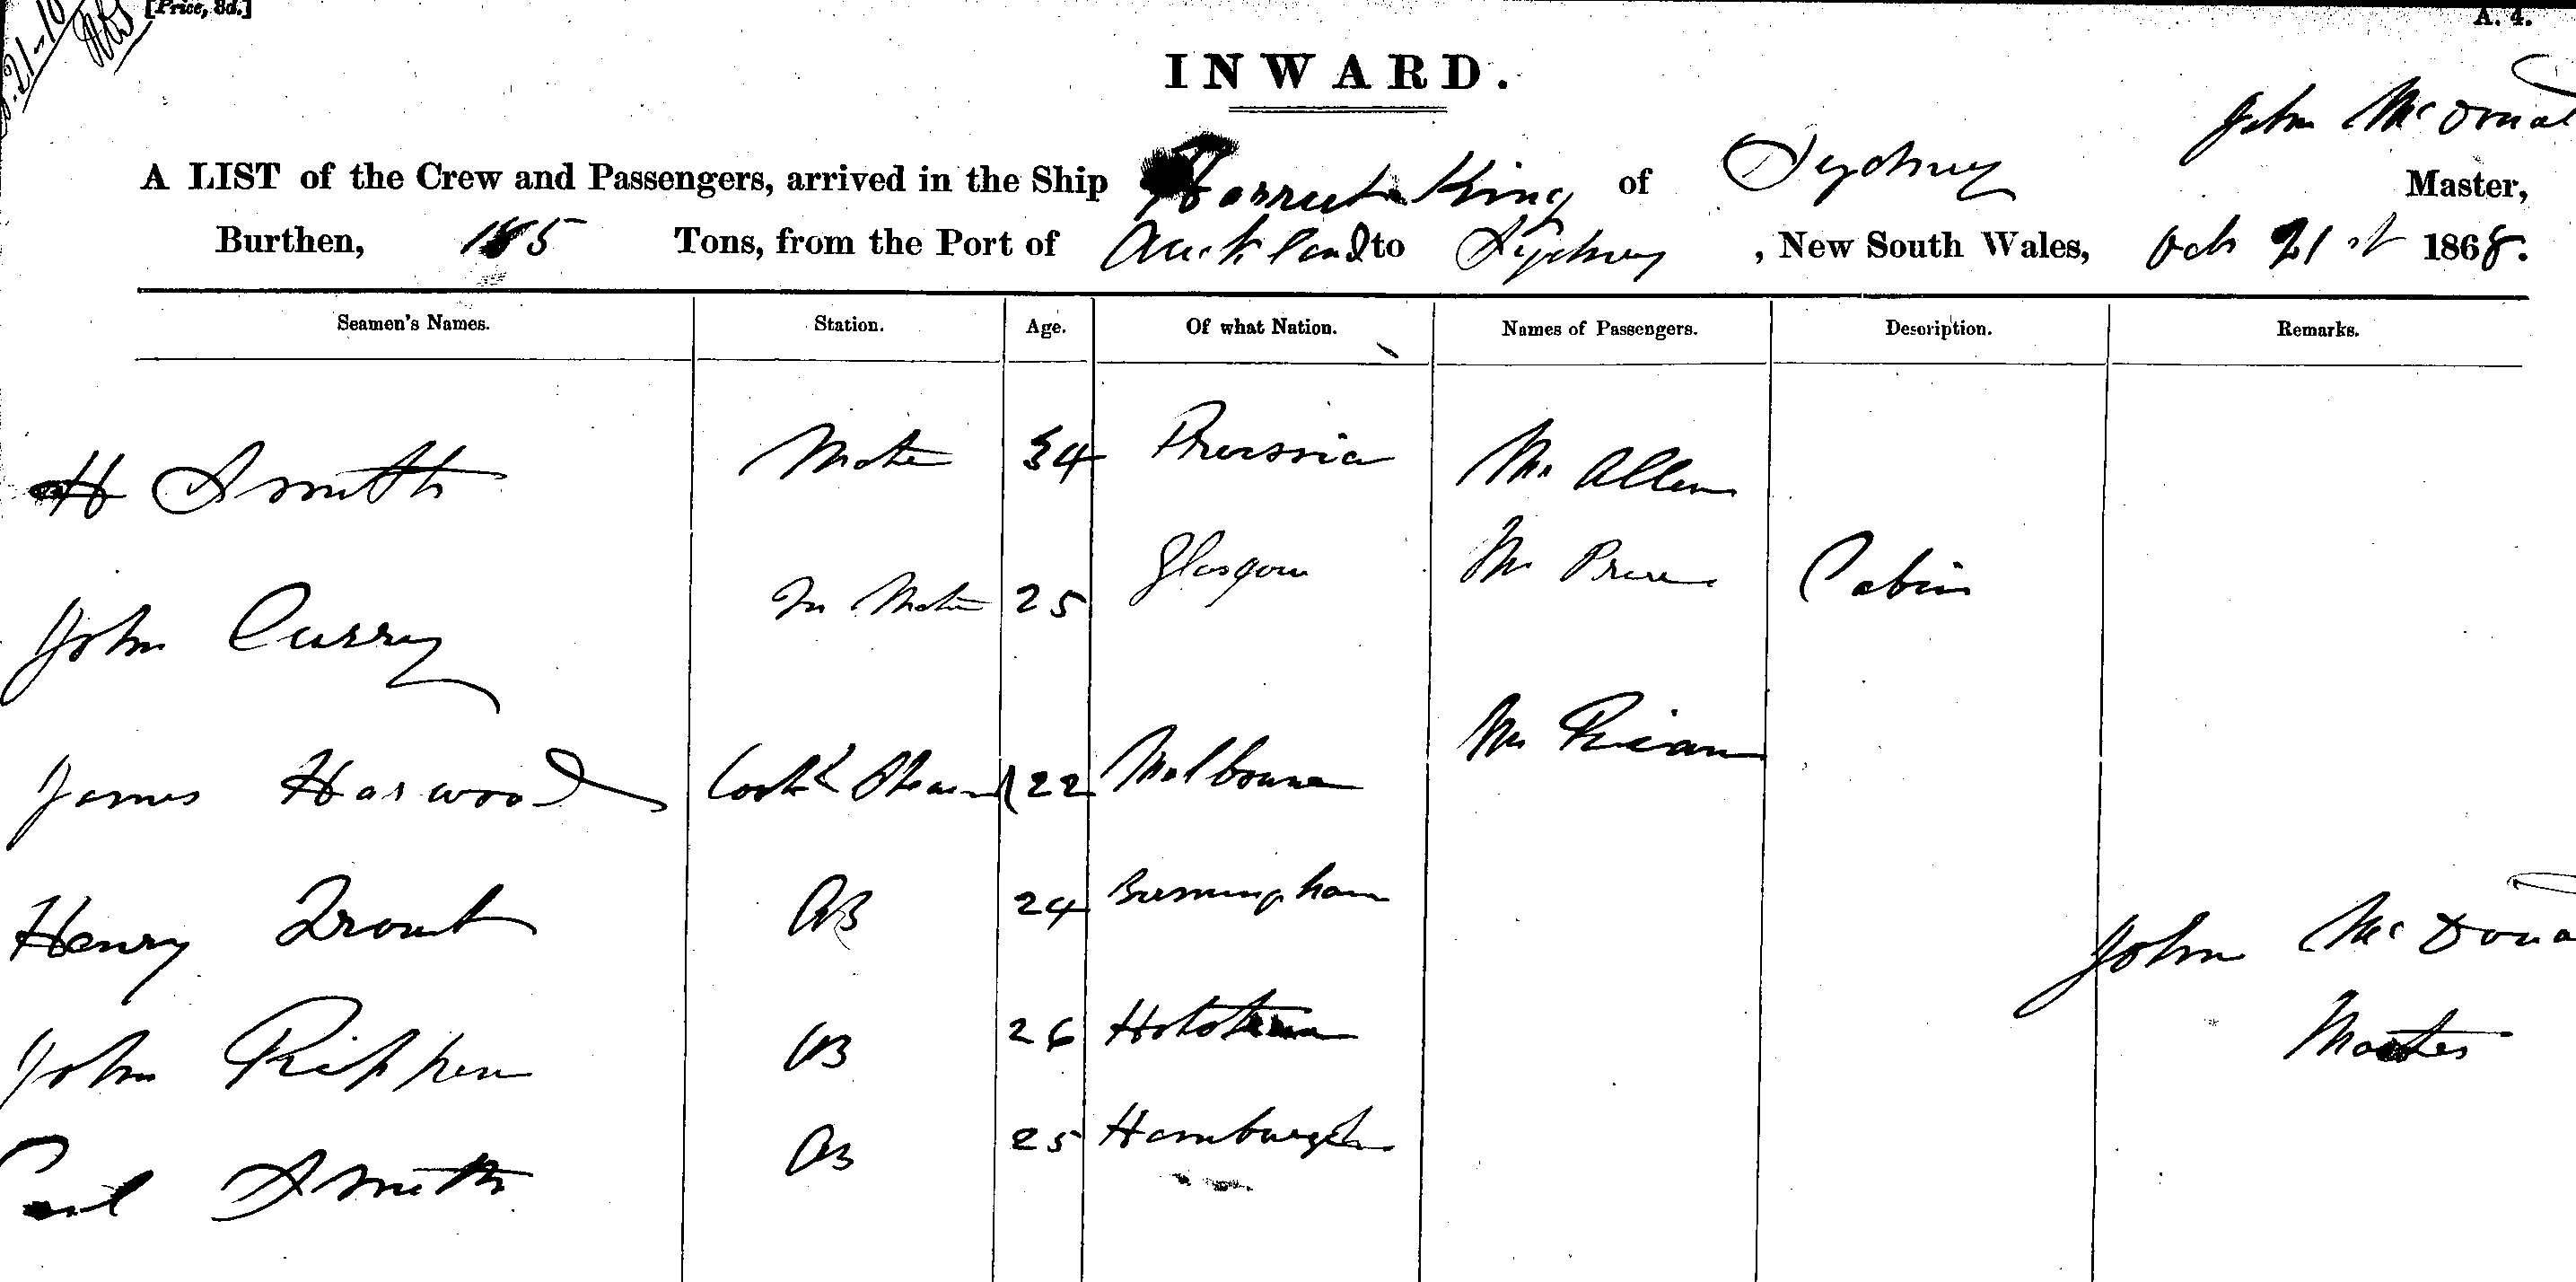 [Price, 8d.]
A. 4.
INWARD.
John McDonal
A LIST of the Crew and Passengers, arrived in the Ship Harriet King of Sydney Master,
Burthen, 185 Tons, from the Port of Auckland to Sydney, New South Wales, Oct 21st 1868.
Seamen's Names. Station. Age. Of what Nation. Names of Passengers. Description. Remarks.
H Smith Mate 34 Prussia Mr Allen
John Curry Mate 25 Glasgow Mr Cabin
James Harwood Cook & Steward 22 Melbourne
Henry Trout AB 24 Birmingham
John Rippen AB 26 John McDona
Master
Carl Smith AB 25 Hamburgh